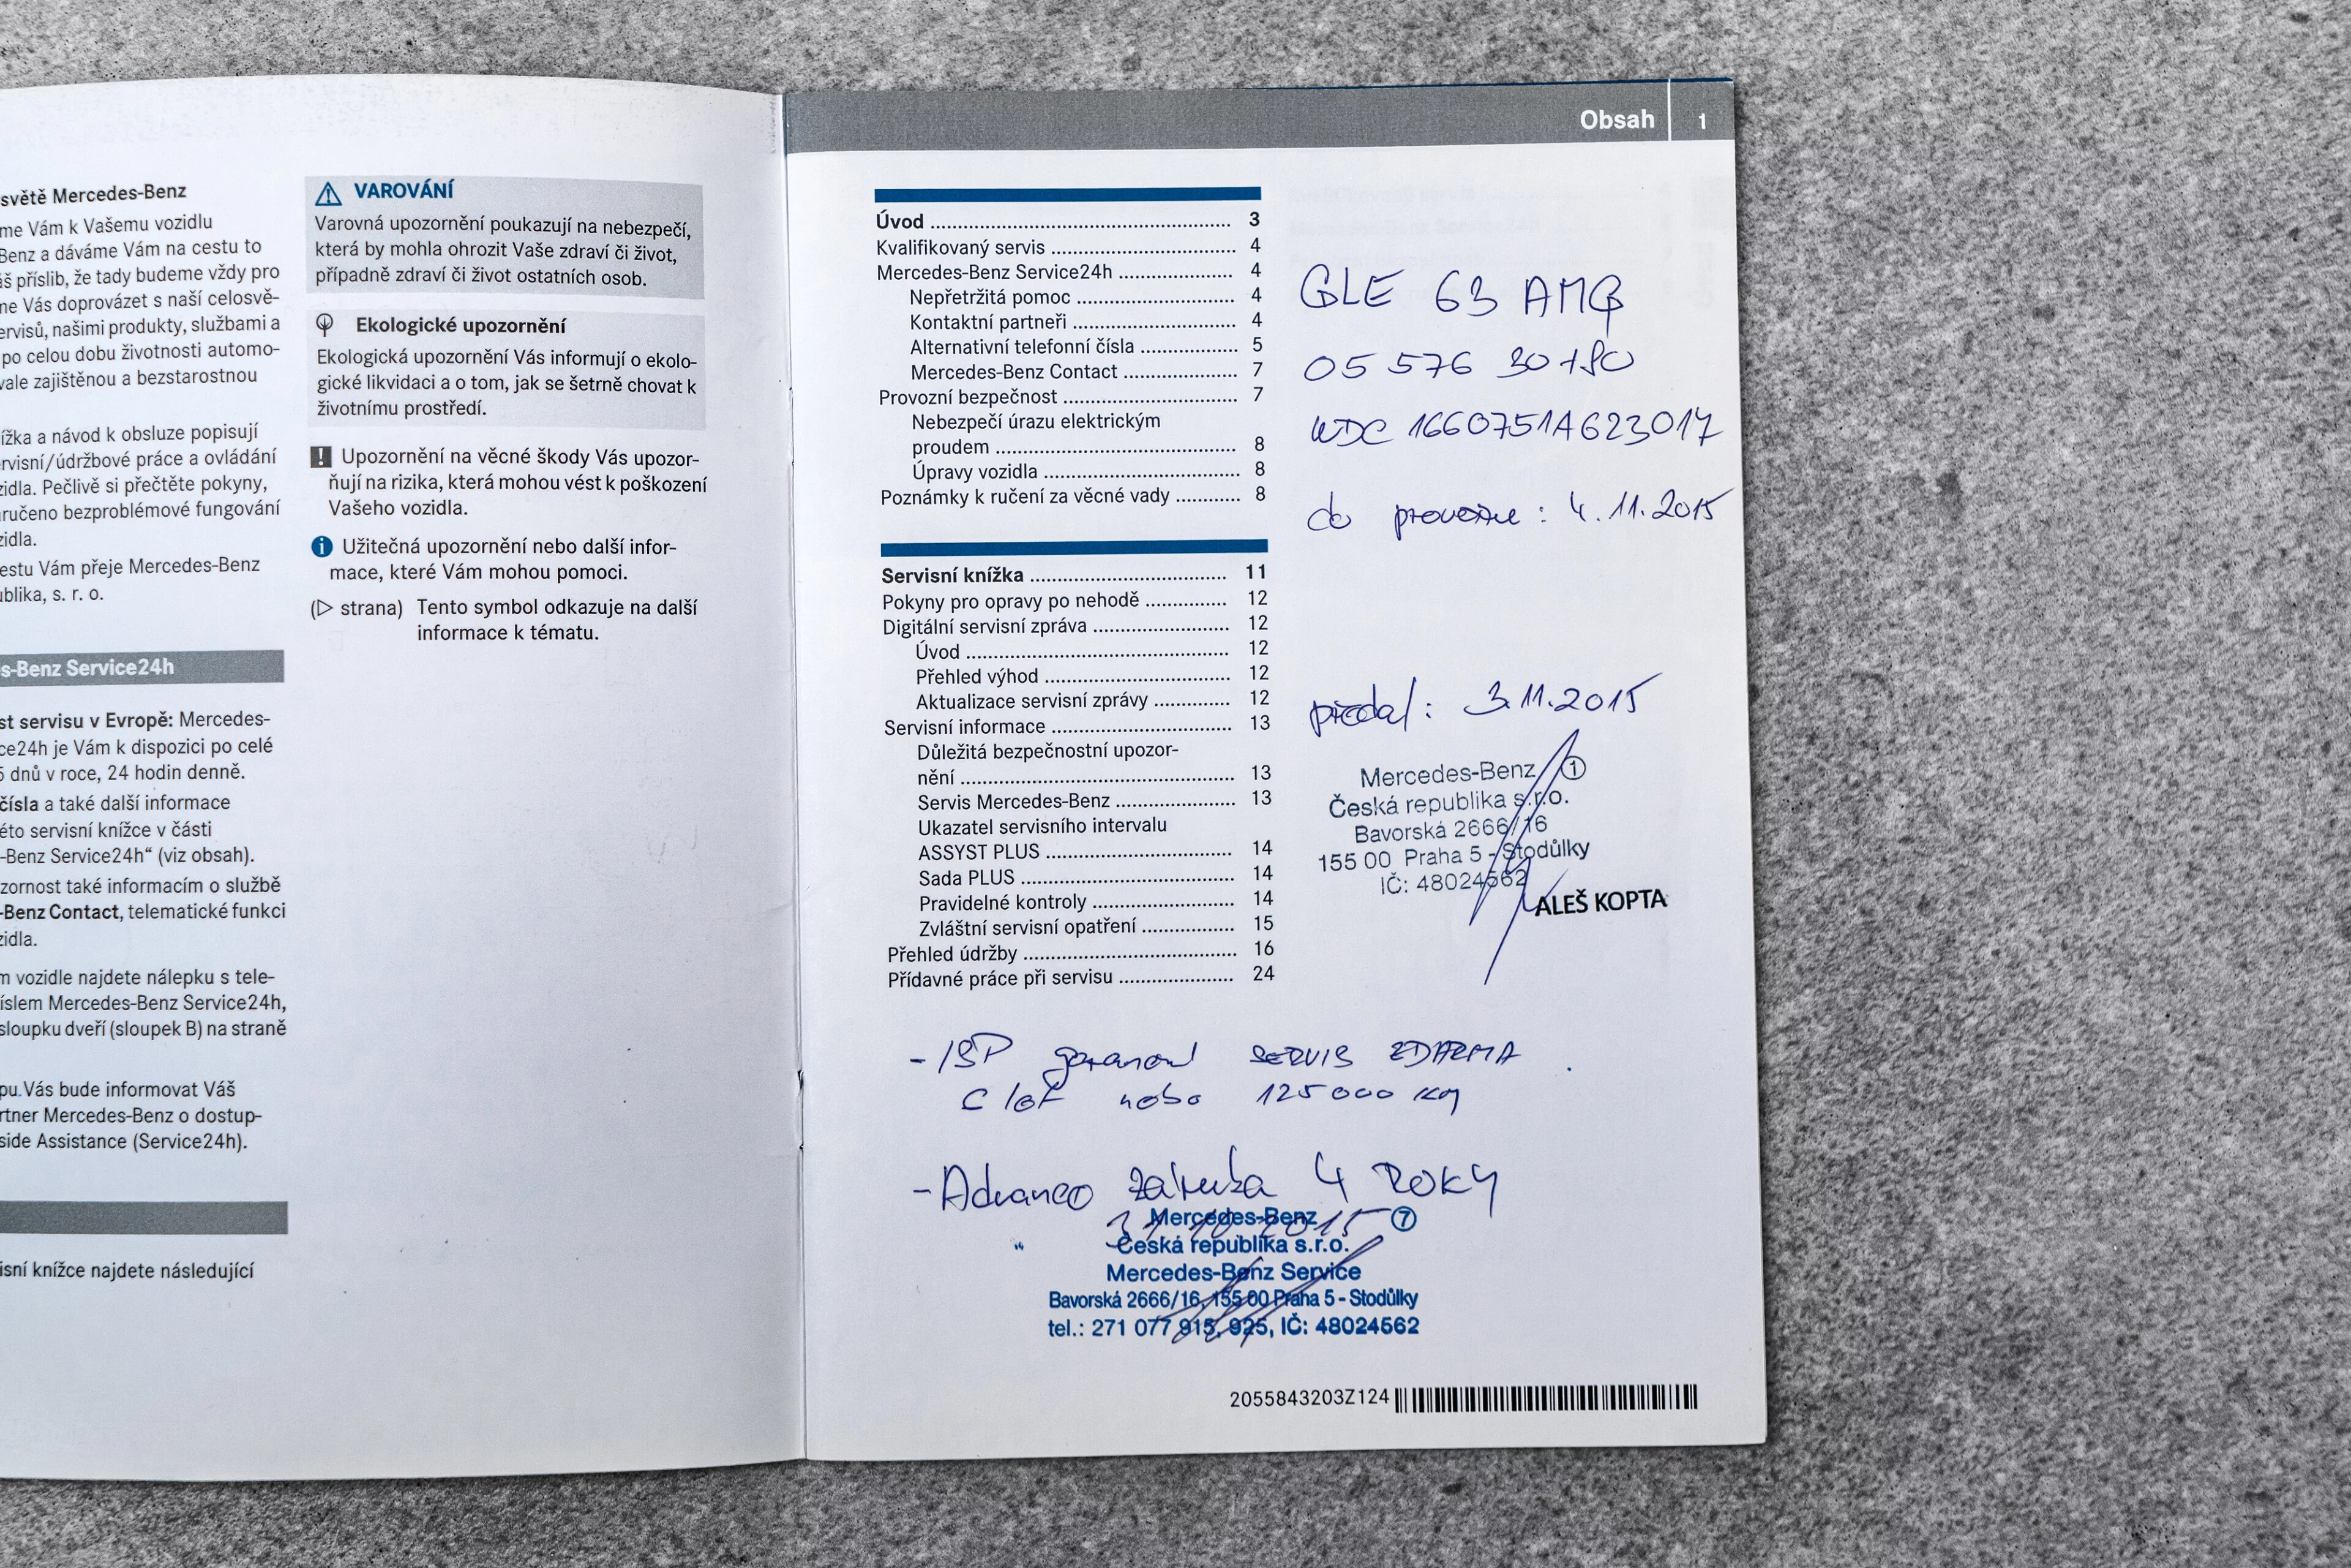 světě Mercedes-Benz
me Vám k Vašemu vozidlu
Benz a dáváme Vám na cestu to
áš příslib, že tady budeme vždy pro
me Vás doprovázet s naší celosvě-
ervisů, našimi produkty, službami a
po celou dobu životnosti automo-
vale zajištěnou a bezstarostnou
ížka a návod k obsluze popisují
rvisní/údržbové práce a ovládání
zidla. Pečlivě si přečtěte pokyny,
ručeno bezproblémové fungování
zidla.
estu Vám přeje Mercedes-Benz
ublika, s. r. o.
s-Benz Service24h
st servisu v Evropě: Mercedes-
ce24h je Vám k dispozici po celé
5 dnů v roce, 24 hodin denně.
čísla a také další informace
éto servisní knížce v části
-Benz Service24h“ (viz obsah).
zornost také informacím o službě
-Benz Contact, telematické funkci
zidla.
m vozidle najdete nálepku s tele-
íslem Mercedes-Benz Service24h,
sloupku dveří (sloupek B) na straně
pu.Vás bude informovat Váš
rtner Mercedes-Benz o dostup-
side Assistance (Service24h).
isní knížce najdete následující
VAROVÁNÍ
Varovná upozornění poukazují na nebezpečí,
která by mohla ohrozit Vaše zdraví či život,
případně zdraví či život ostatních osob.
Ekologické upozornění
Ekologická upozornění Vás informují o ekolo-
gické likvidaci a o tom, jak se šetrně chovat k
životnímu prostředí.
! Upozornění na věcné škody Vás upozor-
ňují na rizika, která mohou vést k poškození
Vašeho vozidla.
i Užitečná upozornění nebo další infor-
mace, které Vám mohou pomoci.
(▷ strana) Tento symbol odkazuje na další
informace k tématu.
Obsah 1
Úvod ........ 3
Kvalifikovaný servis ........ 4
Mercedes-Benz Service24h ........ 4
Nepřetržitá pomoc ........ 4
Kontaktní partneři ........ 4
Alternativní telefonní čísla ........ 5
Mercedes-Benz Contact ........ 7
Provozní bezpečnost ........ 7
Nebezpečí úrazu elektrickým
proudem ........ 8
Úpravy vozidla ........ 8
Poznámky k ručení za věcné vady ........ 8
Servisní knížka ........ 11
Pokyny pro opravy po nehodě ........ 12
Digitální servisní zpráva ........ 12
Úvod ........ 12
Přehled výhod ........ 12
Aktualizace servisní zprávy ........ 12
Servisní informace ........ 13
Důležitá bezpečnostní upozor-
nění ........ 13
Servis Mercedes-Benz ........ 13
Ukazatel servisního intervalu
ASSYST PLUS ........ 14
Sada PLUS ........ 14
Pravidelné kontroly ........ 14
Zvláštní servisní opatření ........ 15
Přehled údržby ........ 16
Přídavné práce při servisu ........ 24
GLE 63 AMG
05 576 30180
WDC 1660751A623017
do provozu: 4.11.2015
předal: 3.11.2015
Mercedes-Benz 1
Česká republika s.r.o.
Bavorská 2666/16
155 00 Praha 5 - Stodůlky
IČ: 48024562
ALEŠ KOPTA
- ISP SERVIS ZDARMA
nebo 125000 km
- Advance záruka 4 ROKY
31.10.2015
Mercedes-Benz 7
Česká republika s.r.o.
Mercedes-Benz Service
Bavorská 2666/16, 155 00 Praha 5 - Stodůlky
tel.: 271 077 915, 925, IČ: 48024562
2055843203Z124